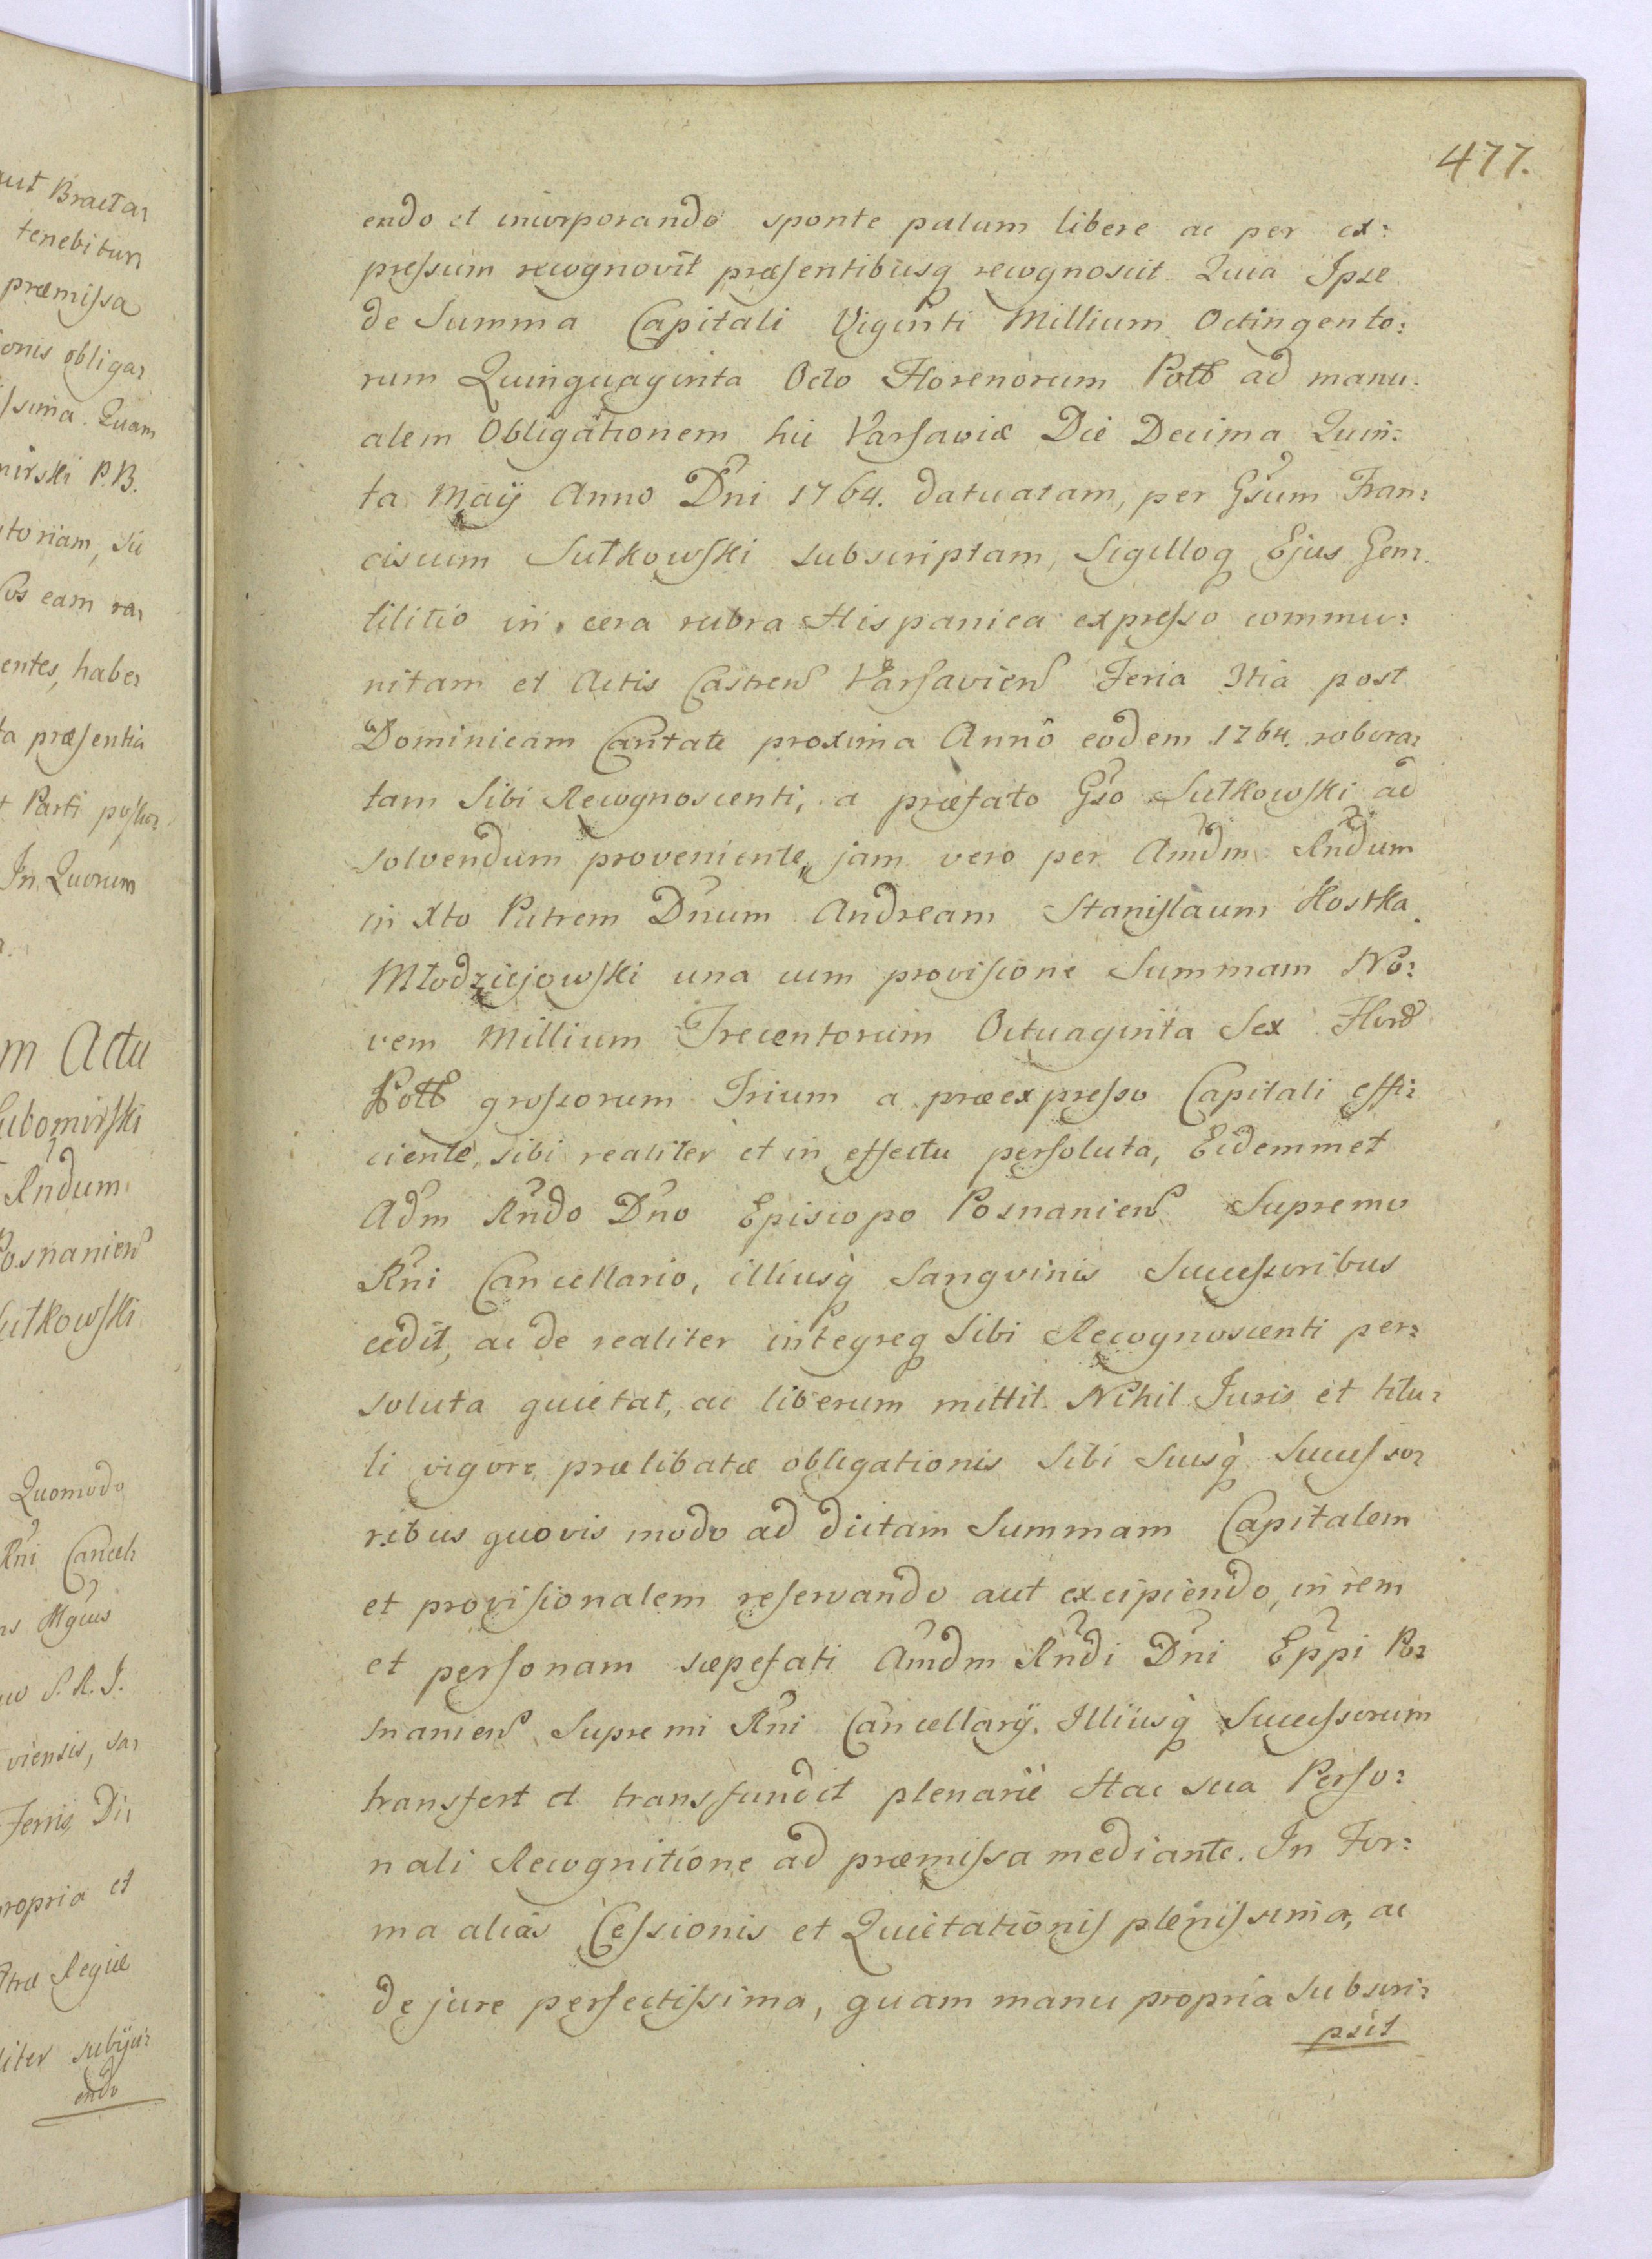 477.
endo et incorporando sponte palam libere ac per ex:
pressum recognovit præsentibusq recognoscit Quia Ipse
de Summa Capitali Viginti Millium Octingento:
rum Quinquaginta Octo Florenorum Poll ad manu:
alem Obligationem hic Varsaviæ Die Decima Quin:
ta Maÿ Anno Dni 1764. datuatam, per Gsum Fran:
ciscum Sutkowski subscriptam, Sigilloq Ejus Gen:
tilitio in cera rubra Hispanica expresso commu:
nitam et Actis Castren Varsavien Feria 3tia post
Dominicam Cantate proxima Anno eodem 1764. robora:
tam Sibi Recognoscenti, a præfato Gso Sutkowski ad
solvendum proveniente, jam vero per Amdm Rndum
in Xto Patrem Dnum Andream Stanislaum Kostka
Młodziejowski una cum provisione Summam No:
vem Millium Trecentorum Octuaginta Sex Flor
Poll grossorum Trium a præexpresso Capitali effi:
ciente, sibi realiter et in effectu persoluta, Eidemmet
Adm Rndo Dno Episcopo Posnanien Supremo
Rni Cancellario, illiusq Sangvinis Successoribus
cedit, ac de realiter integreq Sibi Recognoscenti per:
soluta quietat, ac liberum mittit Nihil Juris et titu:
li vigore prælibatæ obligationis Sibi Suisq Successo:
ribus quovis modo ad dictam Summam Capitalem
et provisionalem reservando aut excipiendo, in rem
et personam sæpefati Amdm Rndi Dni Eppi Po:
snanien Supremi Rni Cancellarÿ Illiusq Successorum
transfert et transfundit plenarie Hac sua Perso:
nali Recognitione ad præmissa mediante. In For:
ma alias Cessionis et Quietationis plenissima, ac
de jure perfectissima, quam manu propria subscri:
psit
ut Bractar
tenebitur
præmissa
onis obliga:
ssima. Quam
mirski P.B.
toriam, Si
os eam ra:
entes, habe:
ta præsentia
t Parti
In Quorum
m Actu
Lubomirski
Rndum
Posnanien
Sutkowski
Quomodo
Rni Cancel:
ns Mgcus
S. R. I.
viensis, Sa:
Terris Di:
propria et
Regiæ
liter subÿci:
endo